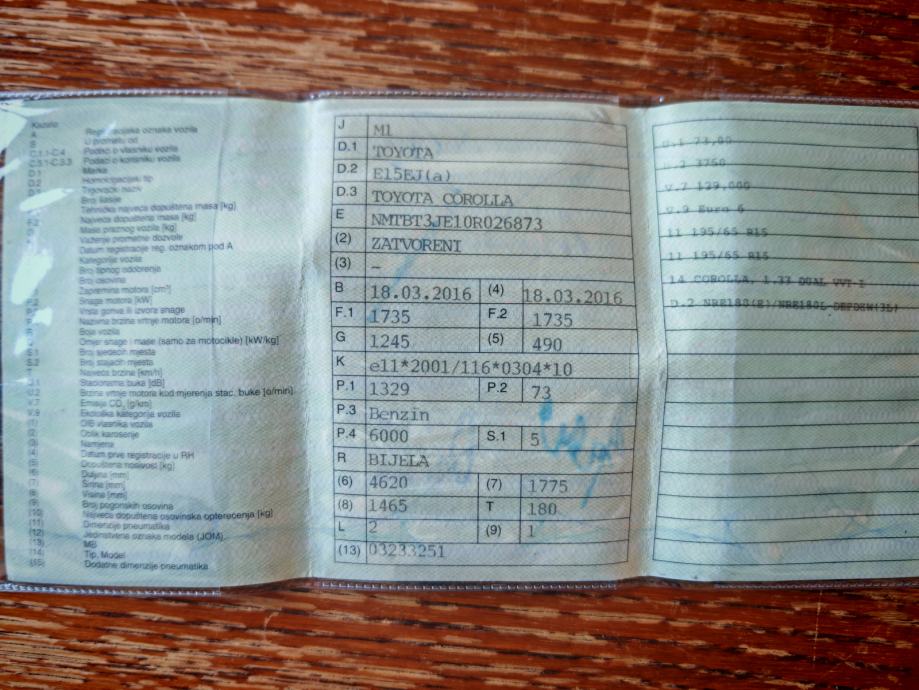 Kazalo:
A Registracijska oznaka vozila
B U prometu od
C.1.1-C.4 Podaci o vlasniku vozila
C.3.1-C.3.3 Podaci o korisniku vozila
D.1 Marka
D.2 Homologacijski tip
D.3 Trgovački naziv
Broj šasije
Tehnička najveća dopuštena masa [kg]
Najveća dopuštena masa [kg]
Masa praznog vozila [kg]
Važenje prometne dozvole
Datum registracije reg. oznakom pod A
Kategorija vozila
Broj tipnog odobrenja
Broj osovina
Zapremina motora [cm³]
P.2 Snaga motora [kW]
Vrsta goriva ili izvora snage
Nazivna brzina vrtnje motora [o/min]
R Boja vozila
Omjer snage i mase (samo za motocikle) [kW/kg]
S.1 Broj sjedećih mjesta
S.2 Broj stajaćih mjesta
T Najveća brzina [km/h]
U.1 Stacionarna buka [dB]
U.2 Brzina vrtnje motora kod mjerenja stac. buke [o/min]
V.7 Emisija CO₂ [g/km]
V.9 Ekološka kategorija vozila
(1) OIB vlasnika vozila
(2) Oblik karoserije
(3) Namjena
(4) Datum prve registracije u RH
(5) Dopuštena nosivost [kg]
(6) Duljina [mm]
(7) Širina [mm]
(8) Visina [mm]
(9) Broj pogonskih osovina
(10) Najveća dopuštena osovinska opterećenja [kg]
(11) Dimenzije pneumatika
(12) Jedinstvena oznaka modela (JOM)
(13) MB
(14) Tip, Model
(15) Dodatne dimenzije pneumatika
J M1
D.1 TOYOTA
D.2 E15EJ(a)
D.3 TOYOTA COROLLA
E NMTBT3JE10R026873
(2) ZATVORENI
(3) –
B 18.03.2016 (4) 18.03.2016
F.1 1735 F.2 1735
G 1245 (5) 490
K e11*2001/116*0304*10
P.1 1329 P.2 73
P.3 Benzin
P.4 6000 S.1 5
R BIJELA
(6) 4620 (7) 1775
(8) 1465 T 180
L 2 (9) 1
(13) 03233251
U.1 73,00
U.2 3750
V.7 129,000
V.9 Euro 6
11 195/65 R15
11 195/65 R15
14 COROLLA, 1.33 DUAL VVT-I